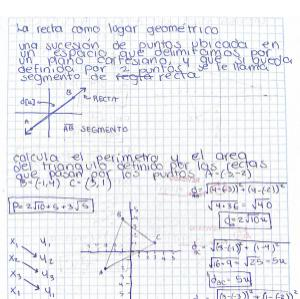 La recta como lugar geométrico
una sucesión de puntos ubicada en
un espacio que delimitamos por
un plano cartesiano, y que si queda
definido por 2 puntos se le llama
segmento de recta recta
d(AB)
B
RECTA
A
AB SEGMENTO
calcula el perímetro y el area
del triangulo definido por las rectas
que pasan por los puntos A=(-3,-2)
B=(-1,4) C=(3,1)
P=2√10+5+3√5
√4+36 = √40
2√10u
√16+9 = √25 = 5u
dBC = 5u
X₁ Y₁
X₂ Y₂
X₃ Y₃
X₁ Y₁